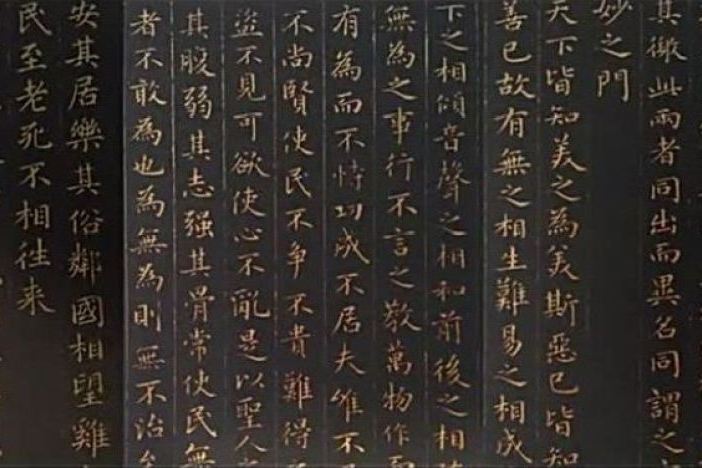 其徼此兩者同出而異名同謂之
妙之門
天下皆知美之為美斯惡已皆知
善已故有無之相生難易之相成
下之相傾音聲之相和前後之相
無為之事行不言之教萬物作而
有為而不恃功成不居夫惟不
不尚賢使民不争不貴難得
盜不見可欲使心不亂是以聖人之
其腹弱其志强其骨常使民無
者不敢為也為無為則無不治
安其居樂其俗鄰國相望雞
民至老死不相往来